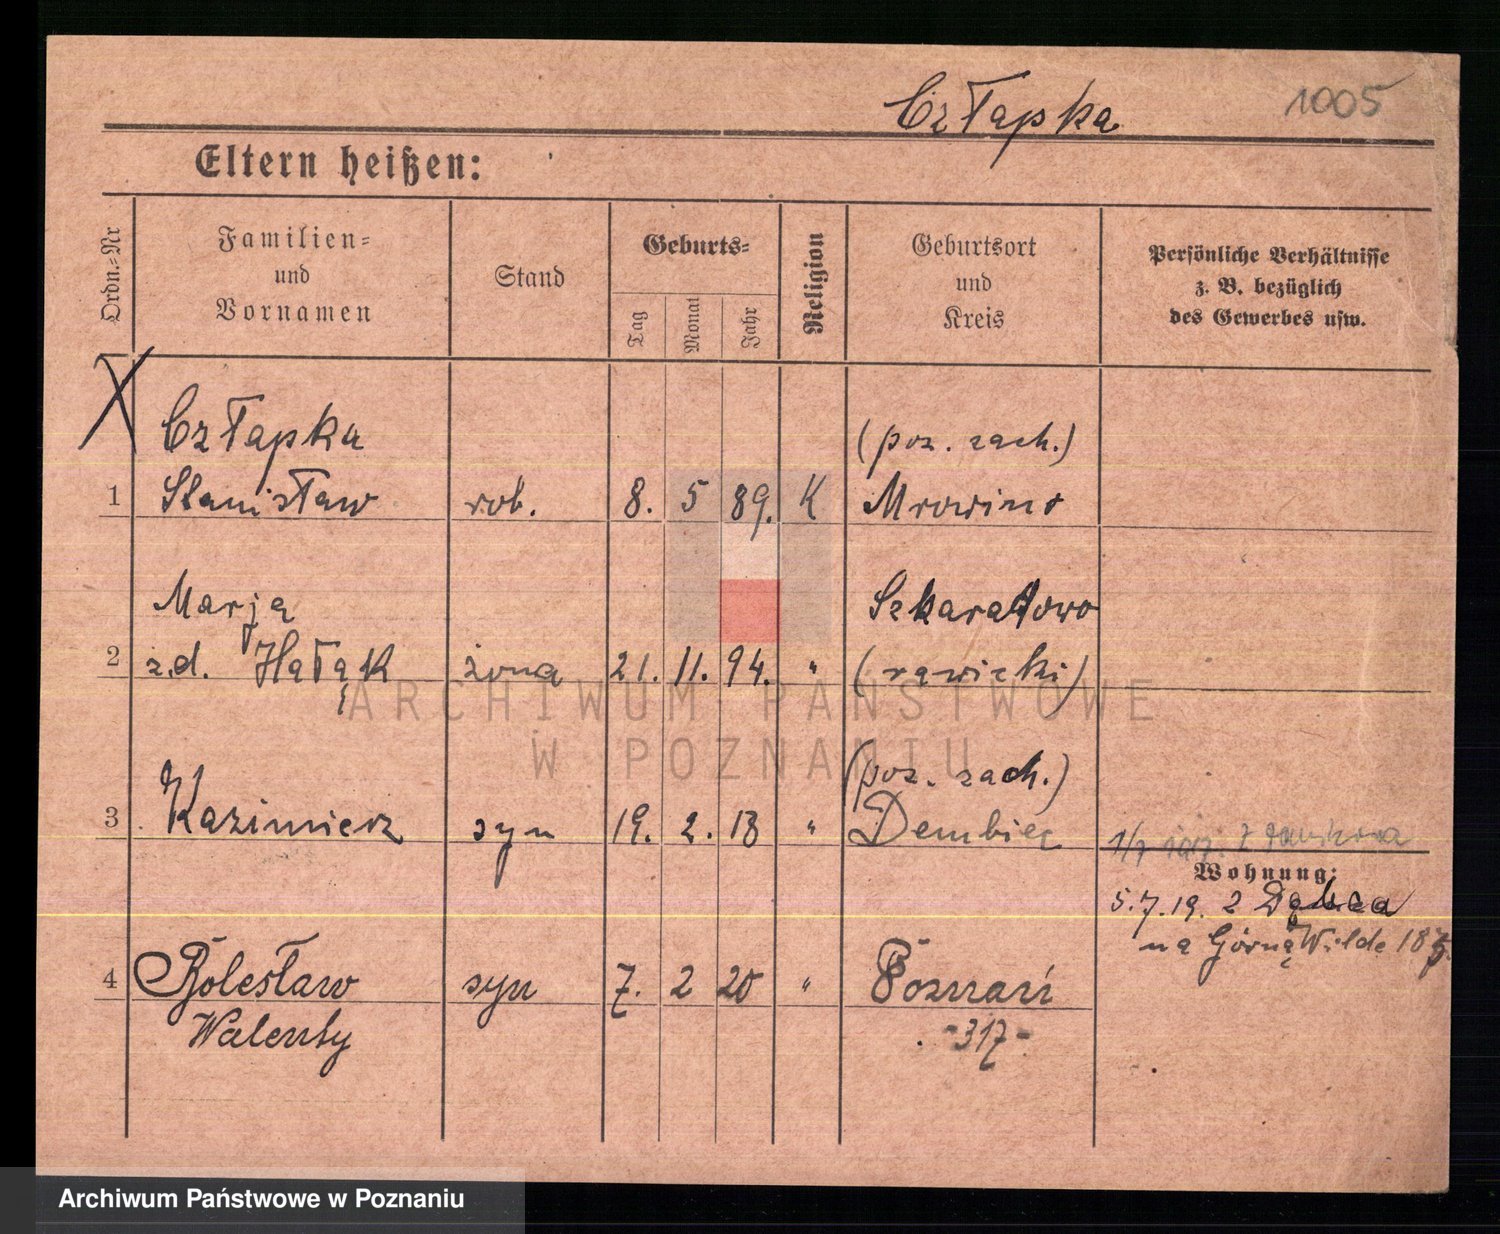 Człapka 1005
Eltern heißen:
Ordn.-Nr
Familien-
und
Vornamen
Stand
Geburts-
Tag
Monat
Jahr
Religion
Geburtsort
und
Kreis
Persönliche Verhältnisse
z. B. bezüglich
des Gewerbes usw.
Człapka (poz. zach.)
1 Stanisław rob. 8. 5 89. K Mrowino
Marja
2 z.d. Hałąk żona 21. 11. 94. " (rawicki)
ARCHIWUM PAŃSTWOWE
W POZNANIU
(poz. zach.)
3 Kazimierz syn 19. 2. 13 " Dembiec
1/7
Wohnung:
5.7.19. 2
na Górną Wildę
4 Bolesław syn 7. 2 20 " Poznań
Walenty -317-
Archiwum Państwowe w Poznaniu